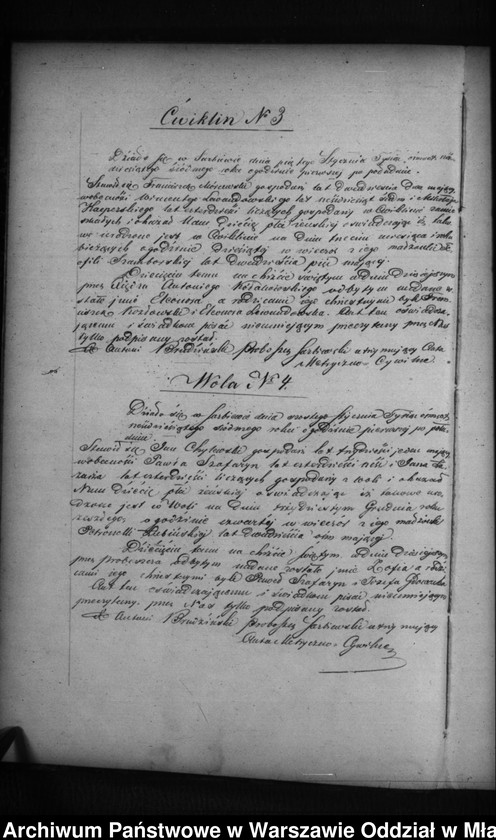 Ćwiklin N 3
Działo się w Sarbiewie dnia piątego Stycznia Tysiąc ośmset
dziesiątego siódmego roku o godzinie pierwszej po południu.
Stawił się Franciszek gospodarz lat dwadzieścia dwa mający
w obecności Wincentego Lewandowskiego lat siódm i
Kasperskiego lat czterdzieści liczących gospodarzy w Ćwiklinie
i okazał Nam Dziecię płci żeńskiej oświadczając iż
urodzone jest w Ćwiklinie na dniu trzecim miesiąca i roku
bieżących o godzinie dziesiątej w wieczór z jego małżonki
lat dwadzieścia pięć mającej
Dziecięciu temu na chrzcie świętym w dniu dzisiejszym
przez Xiędza Antoniego odbytym nadane
zostało imię Eleonora, a rodzicami jego chrzestnymi byli
i Eleonora Lewandowska. Akt ten oświadcza-
jącemu i świadkom pisać nieumiejącym przeczytany przez Nas
tylko podpisany został
X Antoni Proboszcz Sarbiewski utrzymujący Akta
Metryczno-Cywilne
Wola N 4.
Działo się w Sarbiewie dnia szóstego Stycznia Tysiąc ośmset
dziewięćdziesiątego siódmego roku o godzinie pierwszej po połu-
dniu.
Stawił się Jan Chylewski gospodarz lat trzydzieści jeden mający
w obecności Pawła Szafaryn lat czterdzieści i Jana
lat czterdzieści liczących gospodarzy z Woli i okazał
Nam dziecię płci żeńskiej oświadczając iż takowe uro-
dzone jest w Woli na dniu trzydziestym Grudnia roku
zeszłego o godzinie czwartej w wieczór z jego małżonki
Petronelli lat dwadzieścia ośm mającej
Dziecięciu temu na chrzcie świętym w dniu dzisiejszym
przez proboszcza odbytym nadane zostało imię Zofia a rodzi-
cami jego chrzestnymi byli Paweł Szafaryn i Józefa
Akt ten oświadczającemu i świadkom pisać nieumiejącym
przeczytany przez Nas tylko podpisany został
X Antoni Proboszcz Sarbiewski utrzymujący
Akta Metryczno-Cywilne
Archiwum Państwowe w Warszawie Oddział w Mła